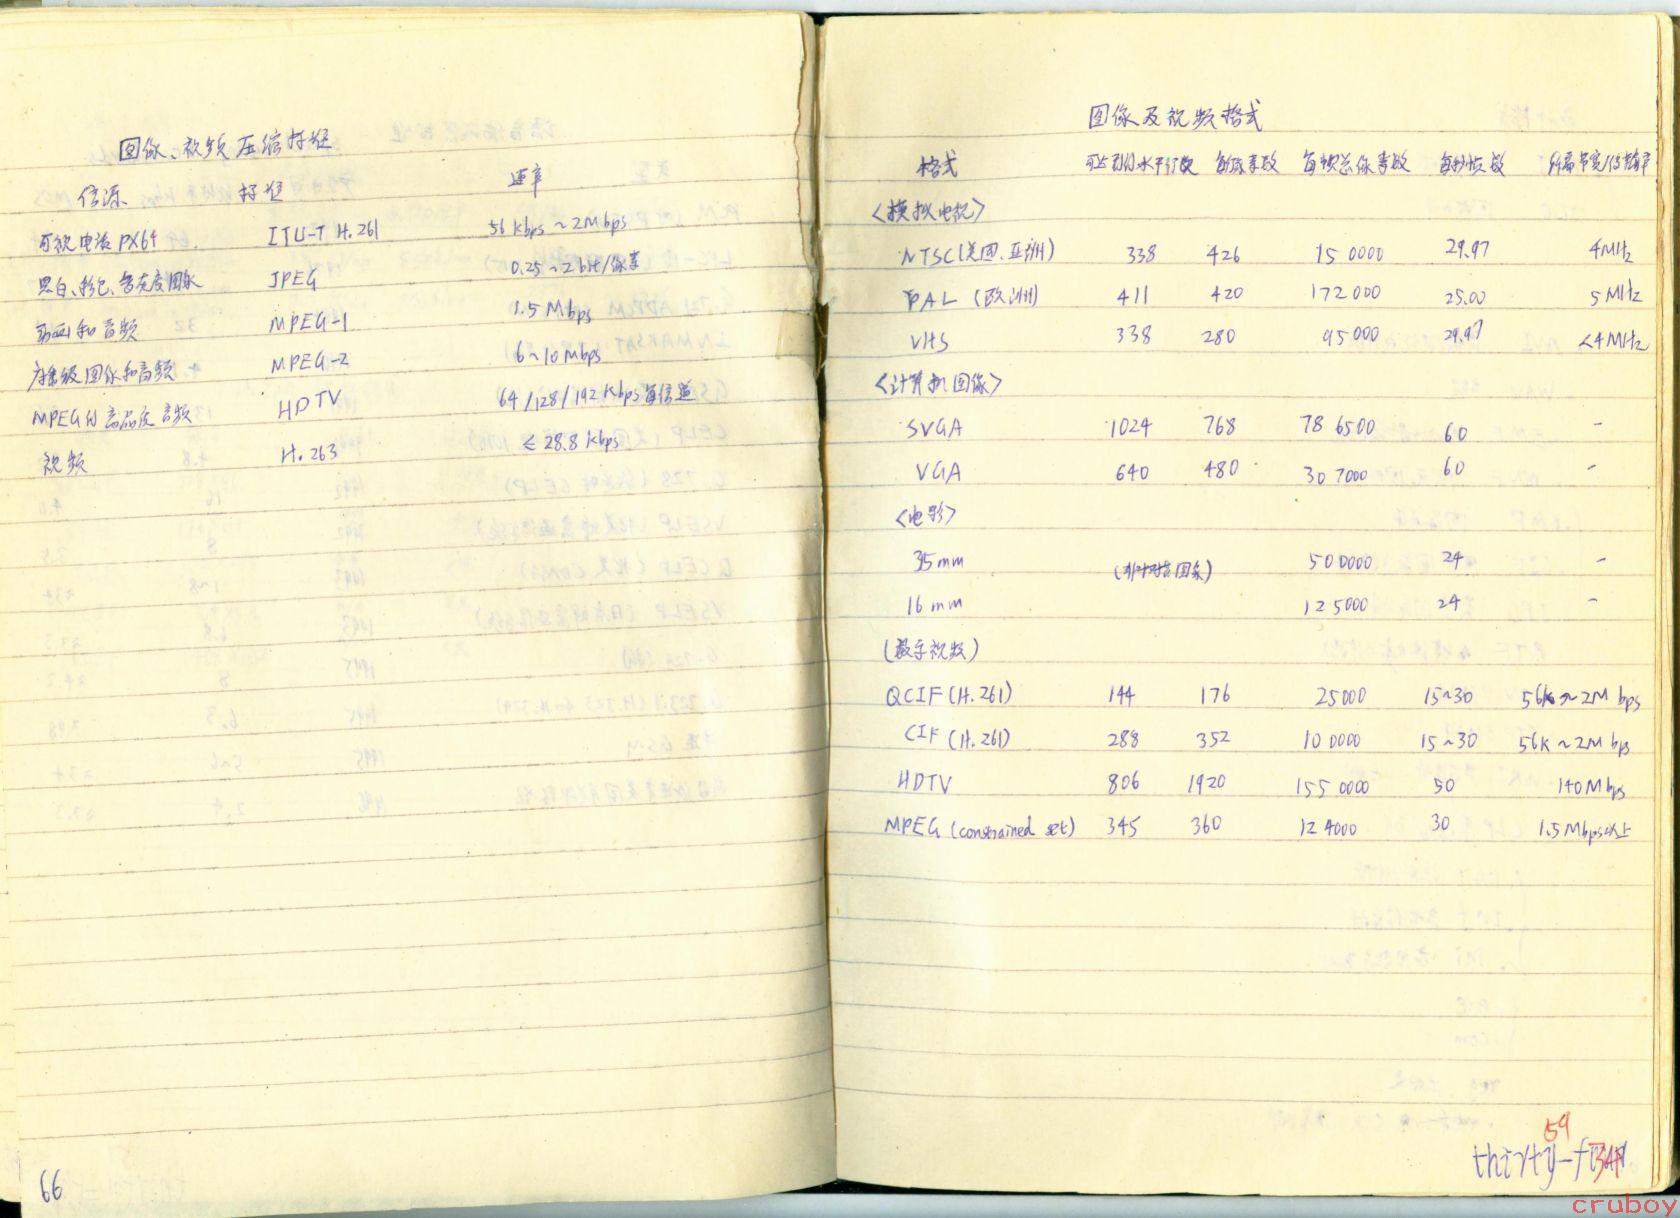 图像、视频压缩标准
信源 标准 速率
可视电话 PX64 ITU-T H.261 56 kbps ~ 2Mbps
黑白、彩色、多灰度图像 JPEG 0.25 ~ 2 bit/像素
动画和音频 MPEG-1 1.5 Mbps
广播级图像和音频 MPEG-2 6~10 Mbps
MPEG的高品质音频 HDTV 64/128/192 Kbps每信道
视频 H.263 ≤ 28.8 kbps
66
图像及视频格式
格式 水平行数 每行像素数 每帧总像素数 每秒帧数 所需带宽/传输率
<模拟电视>
NTSC(美国、亚洲) 338 426 150000 29.97 4MHz
PAL (欧洲) 411 420 172000 25.00 5MHz
VHS 338 280 95000 29.97 <4MHz
<计算机图像>
SVGA 1024 768 786500 60 -
VGA 640 480 307000 60 -
<电影>
35mm 500000 24 -
16mm 125000 24 -
(数字视频)
QCIF (H.261) 144 176 25000 15~30 56k ~ 2M bps
CIF (H.261) 288 352 100000 15~30 56K ~ 2M bps
HDTV 806 1920 1550000 50 140Mbps
MPEG (constrained set) 345 360 124000 30 1.5Mbps以上
59
cruboy